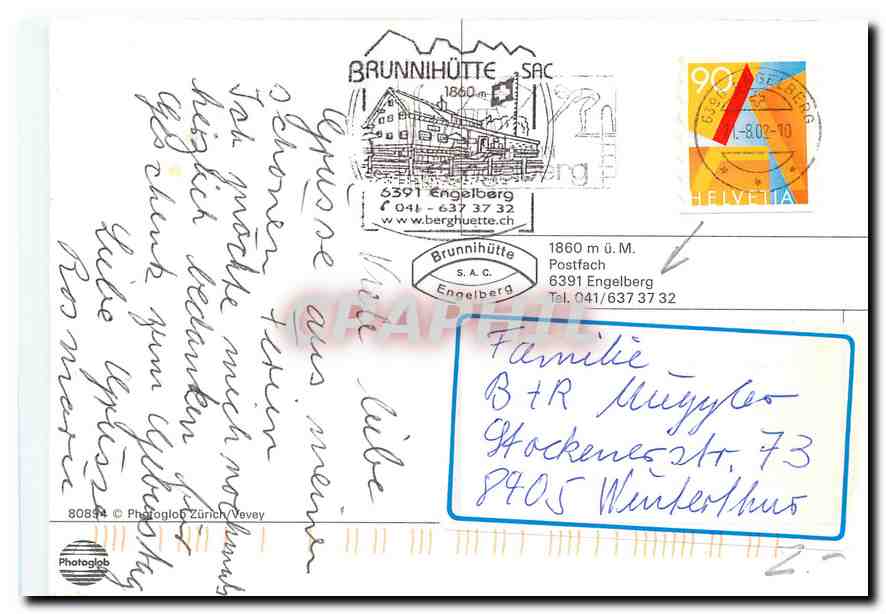 BRUNNIHÜTTE SAC
1860 m
6391 Engelberg
041 - 637 37 32
www.berghuette.ch
90
ENGELBERG
-8.02-10
HELVETIA
Brunnihütte
S.A.C.
Engelberg
1860 m ü. M.
Postfach
6391 Engelberg
Tel. 041/637 37 32
Viele liebe
Grüsse aus meinen
schönen Ferien
Ich möchte mich nochmals
herzlich bedanken für
Geschenk zum Geburtstag
Liebe Grüsse
Rosmarie
Familie
B + R Muggler
Stockenerstr. 73
8405 Winterthur
80894 © Photoglob Zürich/Vevey
Photoglob
2.-